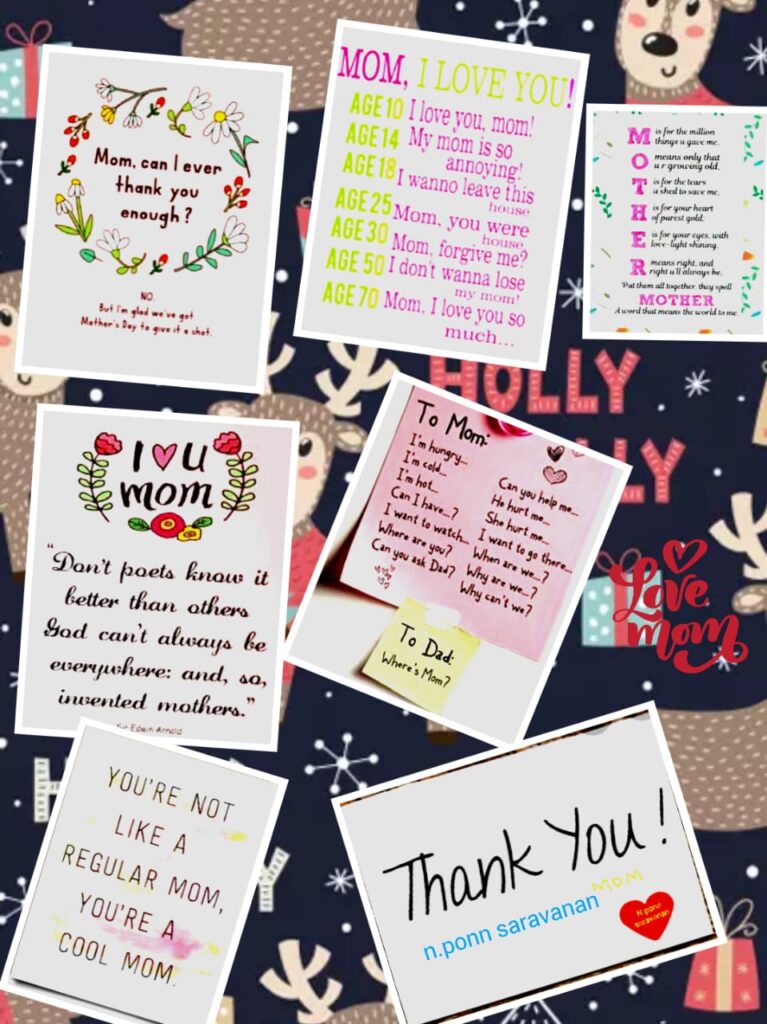 Mom, can I ever
thank you
enough?
NO.
But I'm glad we've got
Mother's Day to give it a shot.
MOM, I LOVE YOU!
AGE 10 I love you, mom!
AGE 14 My mom is so
annoying!
AGE 18 I wanno leave this
house
AGE 25 Mom, you were
house
AGE 30 Mom, forgive me?
AGE 50 I don't wanna lose
my mom!
AGE 70 Mom, I love you so
much...
M is for the million
things u gave me,
O means only that
u r growing old,
T is for the tears
u shed to save me,
H is for your heart
of purest gold;
E is for your eyes, with
love-light shining,
R means right, and
right u'll always be.
Put them all together, they spell
MOTHER
A word that means the world to me.
HOLLY
LLY
I U
mom
"Don't poets know it
better than others
God can't always be
everywhere: and, so,
invented mothers."
Sir Edwin Arnold
To Mom:
I'm hungry...
I'm cold...
I'm hot...
Can I have...?
I want to watch...
Where are you?
Can you ask Dad?
Can you help me...
He hurt me...
She hurt me...
I want to go there...
When are we...?
Why are we...?
Why can't we?
To Dad:
Where's Mom?
Love
mom
YOU'RE NOT
LIKE A
REGULAR MOM,
YOU'RE A
COOL MOM.
Thank You!
MOM
n.ponn saravanan
N.ponn
saravanan